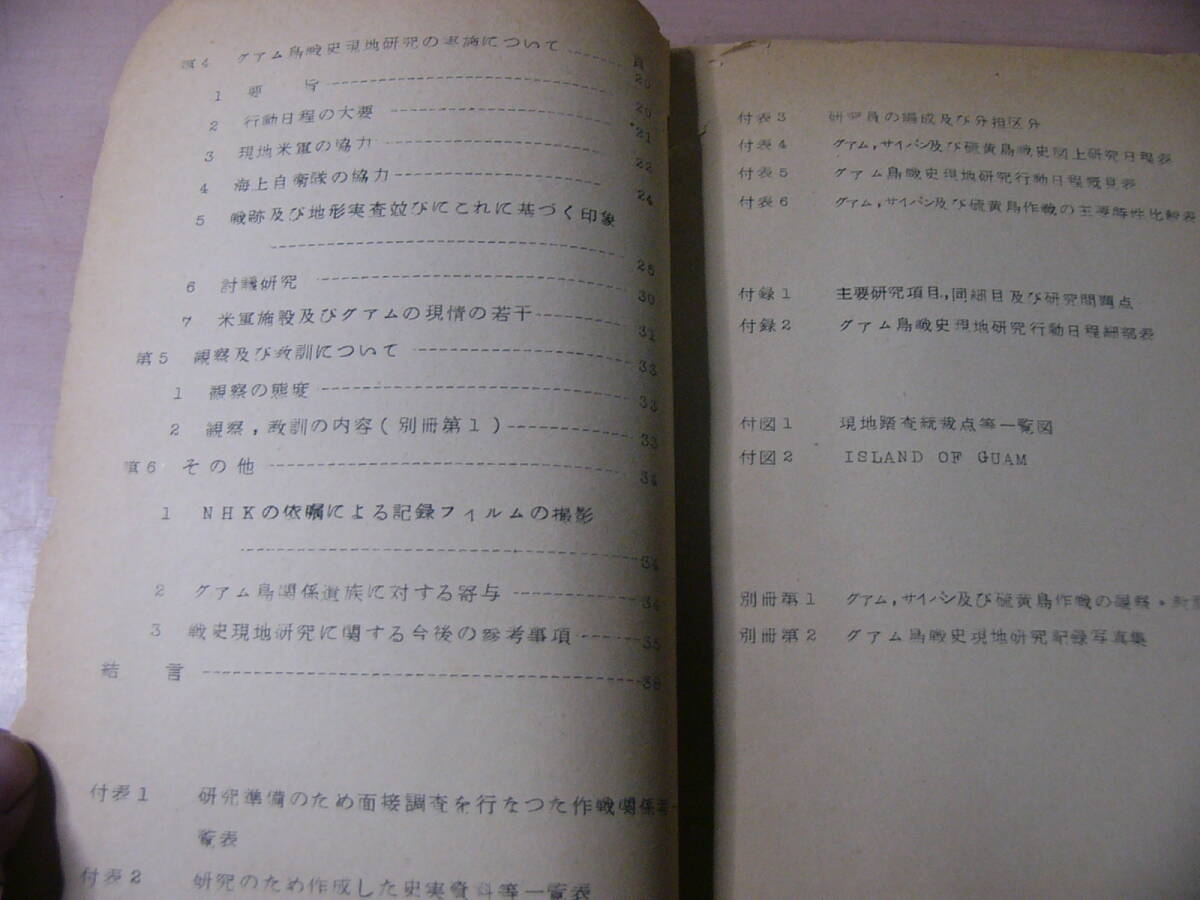 第4 グアム島戦史現地研究の実施について 頁
1 要旨 20
2 行動日程の大要 20
3 現地米軍の協力 21
4 海上自衛隊の協力 22
5 戦跡及び地形実査並びにこれに基づく印象 24
26
6 討議研究 30
7 米軍施設及びグアムの現情の若干 31
第5 観察及び教訓について 33
1 観察の態度 33
2 観察,教訓の内容(別冊第1) 33
第6 その他 34
1 NHKの依嘱による記録フィルムの撮影
34
2 グアム島関係遺族に対する寄与 34
3 戦史現地研究に関する今後の参考事項 35
結言 36
付表1 研究準備のため面接調査を行なつた作戦関係者一
覧表
付表2 研究のため作成した史実資料等一覧表
付表3 研究員の編成及び分担区分
付表4 グアム,サイパン及び硫黄島戦史図上研究日程表
付表5 グアム島戦史現地研究行動日程概見表
付表6 グアム,サイパン及び硫黄島作戦の主要特性比較表
付録1 主要研究項目,同細目及び研究問題点
付録2 グアム島戦史現地研究行動日程細部表
付図1 現地踏査統裁点等一覧図
付図2 ISLAND OF GUAM
別冊第1 グアム,サイパン及び硫黄島作戦の観察・教訓
別冊第2 グアム島戦史現地研究記録写真集